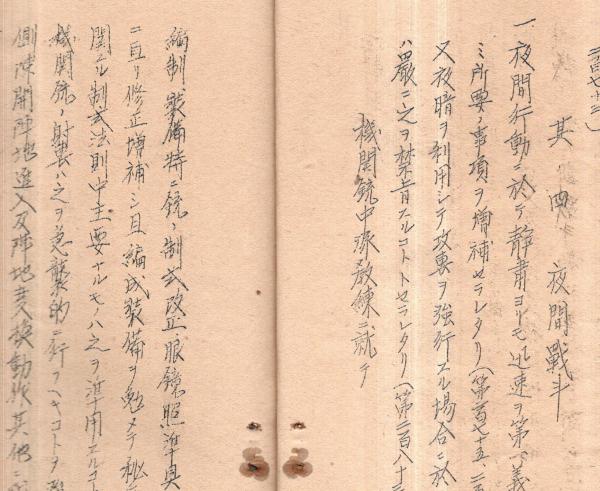 二百七十二)
其四 夜間戰斗
一、夜間行動ニ於テ静粛ヨリモ迅速ヲ第一義
ミ所要ノ事項ヲ増補セラレタリ(第二百七十五、二百
又夜暗ヲ利用シテ攻裏ヲ強行スル場合ニ於
ハ嚴ニ之ヲ禁ずスルコトトセラレタリ(第二百八十
機関銃中隊教練ニ就テ
編制、装備特ニ銃ノ制式改正、眼鏡照準具
ニ亘リ修正増補シ且編成装備ヲ勉メテ秘ニ
関スル制式法則中主要ナルモノハ之ヲ準用スルコト
機関銃ノ射裏ハ之ヲ急襲的ニ行フベキコトヲ
側陣開陣地進入及陣地変換動作其他ニ